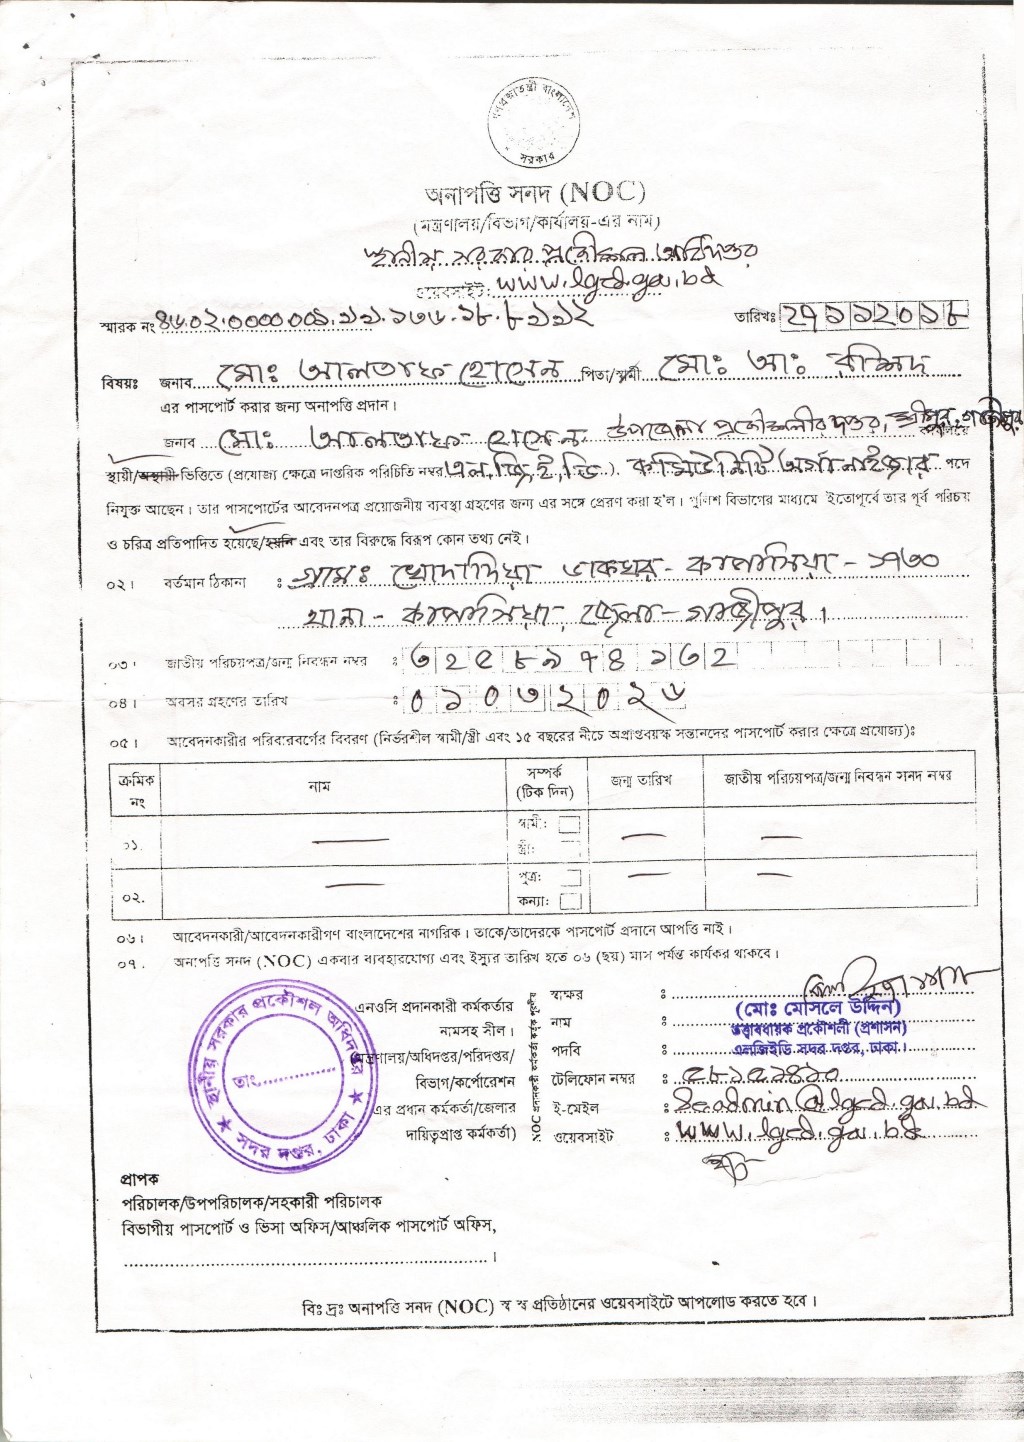 গণপ্রজাতন্ত্রী বাংলাদেশ
সরকার
অনাপত্তি সনদ (NOC)
(মন্ত্রণালয়/বিভাগ/কার্যালয়-এর নাম)
স্থানীয় সরকার প্রকৌশল অধিদপ্তর
ওয়েবসাইট: www.lged.gov.bd
স্মারক নং ৪৬.০২.০০০০.০০১.১১.১৭৬.১৮.৮১১২ তারিখঃ ২৭১১২০১৮
বিষয়ঃ জনাব মোঃ আলতাফ হোসেন পিতা/স্বামী মোঃ আঃ রশিদ
এর পাসপোর্ট করার জন্য অনাপত্তি প্রদান।
জনাব মোঃ আলতাফ হোসেন উপজেলা প্রকৌশলীর দপ্তর, শ্রীপুর, গাজীপুর কার্যালয়ে
স্থায়ী/অস্থায়ী ভিত্তিতে (প্রযোজ্য ক্ষেত্রে দাপ্তরিক পরিচিতি নম্বর এল,জি,ই,ডি) কমিউনিটি অর্গানাইজার পদে
নিযুক্ত আছেন। তার পাসপোর্টের আবেদনপত্র প্রয়োজনীয় ব্যবস্থা গ্রহণের জন্য এর সঙ্গে প্রেরণ করা হ'ল। পুলিশ বিভাগের মাধ্যমে ইতোপূর্বে তার পূর্ব পরিচয়
ও চরিত্র প্রতিপাদিত হয়েছে/হয়নি এবং তার বিরুদ্ধে বিরূপ কোন তথ্য নেই।
০২। বর্তমান ঠিকানা : গ্রামঃ খোদাদিয়া ডাকঘর- কাপাসিয়া - ১৭৩০
থানা - কাপাসিয়া, জেলা - গাজীপুর।
০৩। জাতীয় পরিচয়পত্র/জন্ম নিবন্ধন নম্বর : ৩২৫৮৯৭৪১৩২
০৪। অবসর গ্রহণের তারিখ : ০১০৩২০২৬
০৫। আবেদনকারীর পরিবারবর্গের বিবরণ (নির্ভরশীল স্বামী/স্ত্রী এবং ১৫ বছরের নীচে অপ্রাপ্তবয়স্ক সন্তানদের পাসপোর্ট করার ক্ষেত্রে প্রযোজ্য)ঃ
ক্রমিক নং নাম সম্পর্ক (টিক দিন) জন্ম তারিখ জাতীয় পরিচয়পত্র/জন্ম নিবন্ধন সনদ নম্বর
০১. — স্বামী: — —
স্ত্রী:
০২. — পুত্র: — —
কন্যা:
০৬। আবেদনকারী/আবেদনকারীগণ বাংলাদেশের নাগরিক। তাকে/তাদেরকে পাসপোর্ট প্রদানে আপত্তি নাই।
০৭. অনাপত্তি সনদ (NOC) একবার ব্যবহারযোগ্য এবং ইস্যুর তারিখ হতে ০৬ (ছয়) মাস পর্যন্ত কার্যকর থাকবে।
স্থানীয় সরকার প্রকৌশল অধিদপ্তর
তাং
সদর দপ্তর, ঢাকা
এনওসি প্রদানকারী কর্মকর্তার
নামসহ সীল।
মন্ত্রণালয়/অধিদপ্তর/পরিদপ্তর/
বিভাগ/কর্পোরেশন
এর প্রধান কর্মকর্তা/জেলার
দায়িত্বপ্রাপ্ত কর্মকর্তা)
NOC প্রদানকারী কর্মকর্তা কর্তৃক পূরণীয়
স্বাক্ষর :
নাম : (মোঃ মোসলে উদ্দিন)
তত্ত্বাবধায়ক প্রকৌশলী (প্রশাসন)
পদবি : এলজিইডি সদর দপ্তর, ঢাকা।
টেলিফোন নম্বর : ৫৮১৫১৪১০
ই-মেইল : Seadmin@lged.gov.bd
ওয়েবসাইট : www.lged.gov.bd
প্রাপক
পরিচালক/উপপরিচালক/সহকারী পরিচালক
বিভাগীয় পাসপোর্ট ও ভিসা অফিস/আঞ্চলিক পাসপোর্ট অফিস,
।
বিঃ দ্রঃ অনাপত্তি সনদ (NOC) স্ব স্ব প্রতিষ্ঠানের ওয়েবসাইটে আপলোড করতে হবে।